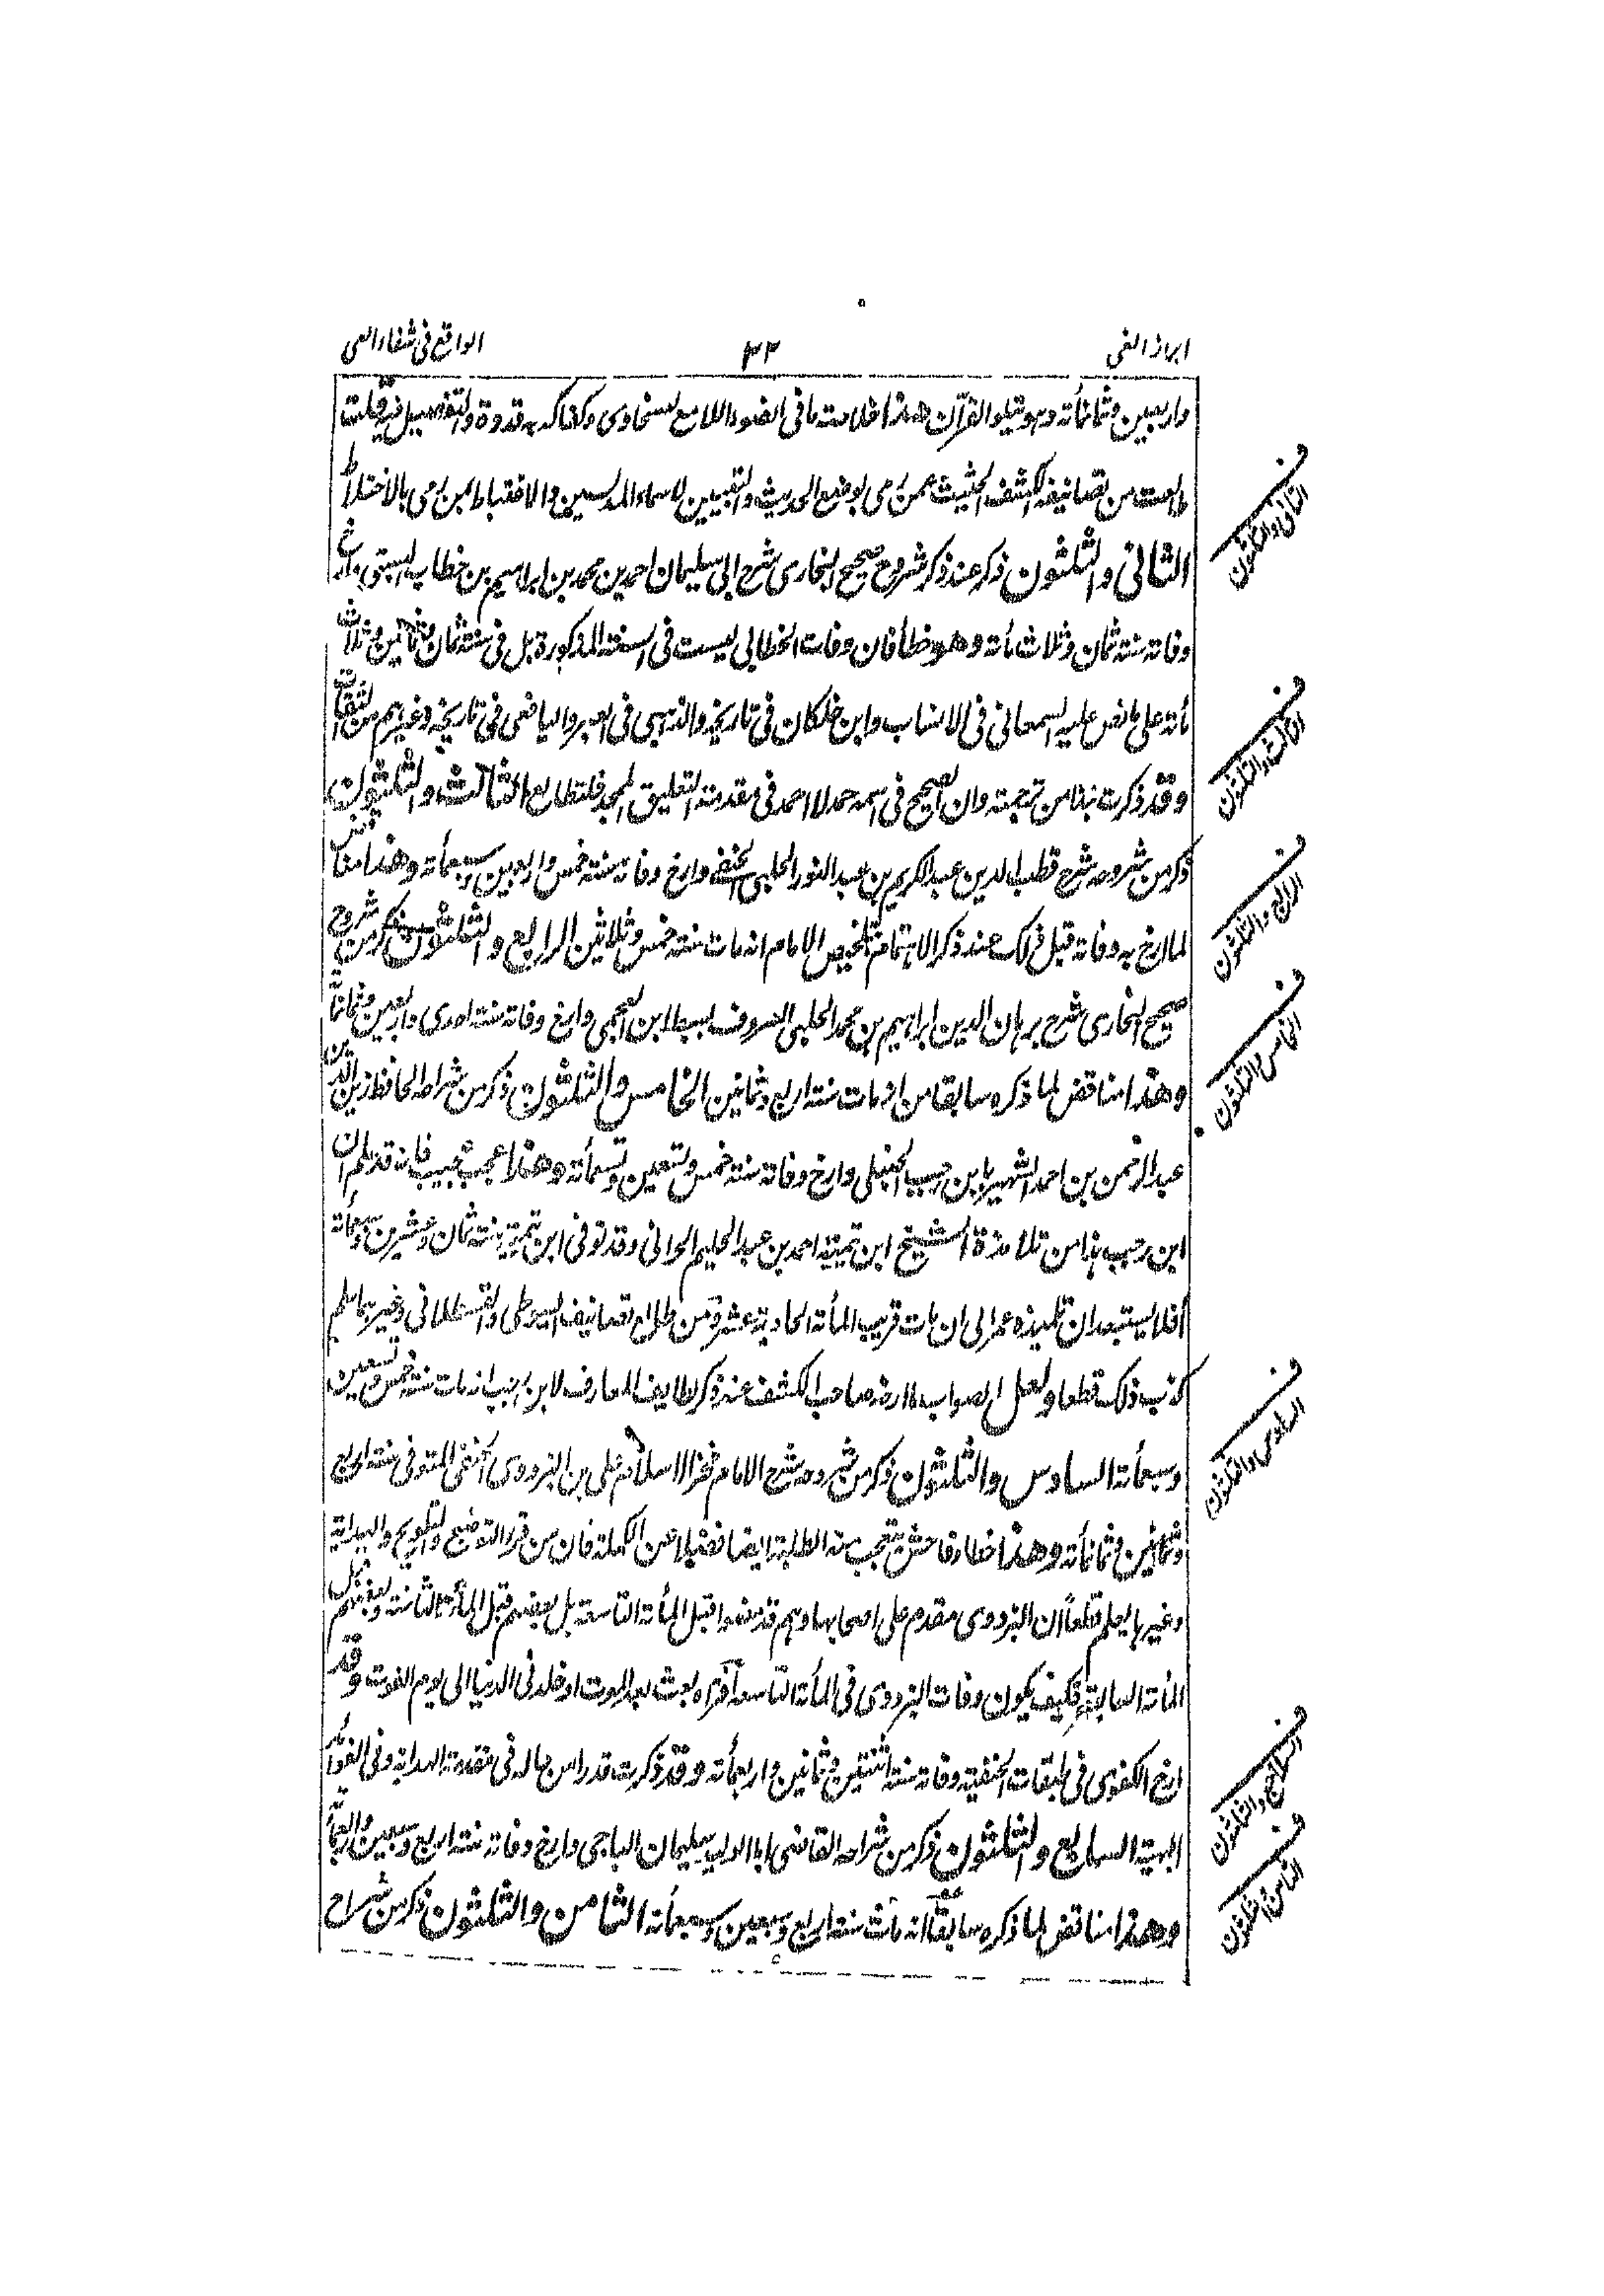 ابراز الغی
٣٢
الواقع فی شفاء العی
واربعین وثمانمأته وہو یتلو القرآن ھذا خلاصة ما فی الضوء اللامع للسخاوی وکفاک به قدوة والتفصیل فیه قلت
طالعت من تصانیفه الکشف الحثیث عمن رمی بوضع الحدیث والتبیین لاسماء المدلسین والاغتباط بمن رمی بالاختلاط
الثانی والثلثون ذکر عند ذکر شروح صحیح البخاری شرح ابی سلیمان احمد بن محمد بن ابراہیم بن خطاب البستی وارخ
وفاته سنة ثمان وثلاث مأته وھو خطأ فان وفات الخطابی لیست فی السنة المذکورة بل فی سنة ثمان وثمانین وثلاث
مأته علی ما نص علیه السمعانی فی الانساب وابن خلکان فی تاریخه والذہبی فی العبر والیافعی فی تاریخه وغیرہم من الثقات
وقد ذکرت نبذا من ترجمته وان الصحیح فی اسمه حمد لا احمد فی مقدمة التعلیق الممجد فلتطالع الثالث والثلثون
ذکر من شروحه شرح قطب الدین عبد الکریم بن عبد النور الحلبی الحنفی وارخ وفاته سنة خمس واربعین وسبعمأته وھذا مناقض
لما ارخ به وفاته قبل ذلک عند ذکر الاہتمام تلخیص الإمام انه مات سنة خمس وثلاثین الرابع والثلثون ذکر من شروح
صحیح البخاری شرح برہان الدین ابراہیم بن محمد الحلبی المعروف بسبط ابن العجمی وارخ وفاته سنة احدی واربعین وثمانمأته
وھذا مناقض لما ذکره سابقا من انه مات سنة اربع وثمانین الخامس والثلثون ذکر من شراحه الحافظ زین الدین
عبد الرحمن بن احمد الشہیر بابن رجب الحنبلی وارخ وفاته سنة خمس وتسعین وتسعمأته وھذا عجب عجیب فانه قد علم ان
ابن رجب ہذا من تلامذة الشیخ ابن تیمیة احمد بن عبد الحلیم الحرانی وقد توفی ابن تیمیة سنة ثمان وعشرین وسبعمأته
أفلا یستبعد ان تلمیذه عمر الی ان مات قریب المأته الحادیة عشرة ومن طالع تصانیف السیوطی والقسطلانی وغیرہما علم
کذب ذلک قطعا ولعل الصواب ما ارخه صاحب الکشف عند ذکر لطایف المعارف لابن رجب انه مات سنة خمس وتسعین
وسبعمأته السادس والثلثون ذکر من شروحه شرح الامام فخر الاسلام علی بن البزدوی الحنفی المتوفی سنة اربع
وثمانین وثمانمأته وھذا خطاء فاحش یتعجب منه الطلبة ایضا فضلا عن الکملة فان من قرأ التوضیح والتلویح والہدایة
وغیرہا یعلم قطعاً ان البزدوی مقدم علی اصحابہا وہم قد مضوا قبل المأته التاسعة بل بعضہم قبل المأته الثامنة وبعضہم قبل
المأته السابعة فکیف یکون وفات البزدوی فی المأته التاسعة أفتراه بعث بعد الموت او خلد فی الدنیا الی یوم الفوت وقد
ارخ الکفوی فی طبقات الحنفیه وفاته سنة اثنتین وثمانین واربعمأته وقد ذکرت قدرا من حاله فی مقدمة الہدایه وفی الفوائد
البہیة السابع والثلثون ذکر من شراحه القاضی ابا الولید سلیمان الباجی وارخ وفاته سنة اربع وسبعین واربعمأته
وھذا مناقض لما ذکره سابقاً انه مات سنة اربع وسبعین وسبعمأته الثامن والثلثون ذکر من شراح
الثانی والثلثون
الثالث والثلثون
الرابع والثلثون
الخامس والثلثون
السادس والثلثون
السابع والثلثون
الثامن والثلثون